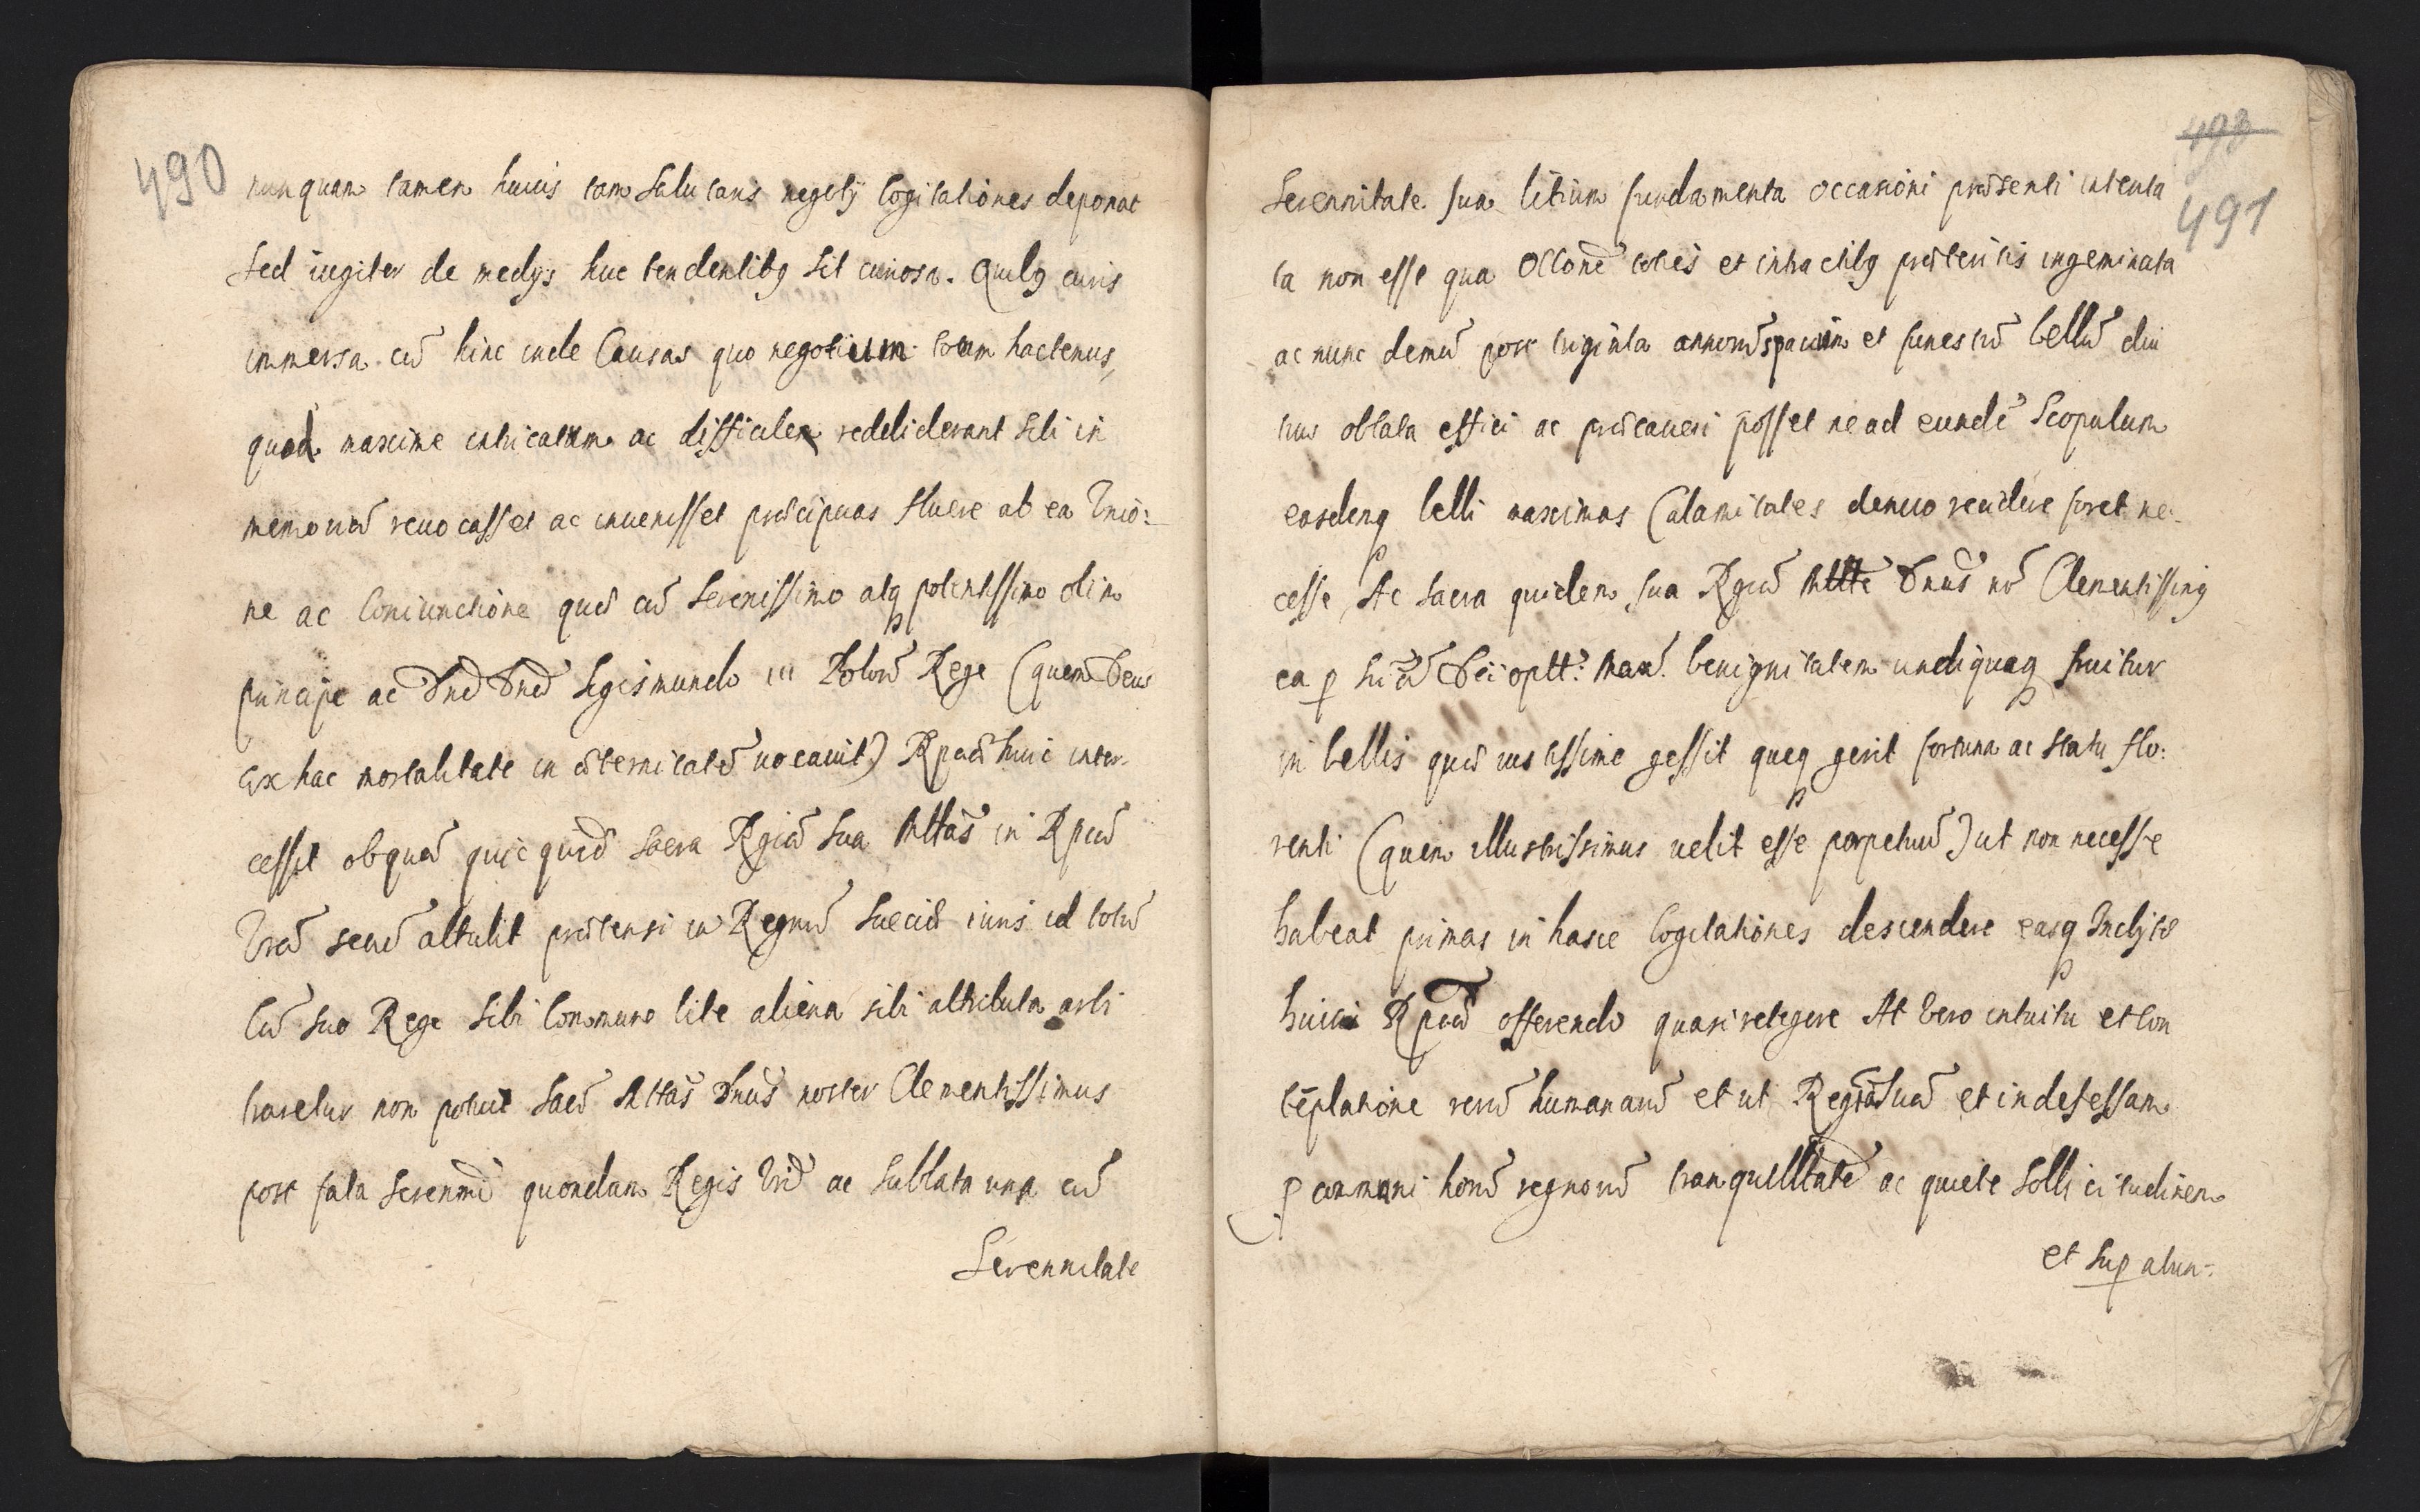 490
nunquam tamen huius tam salutaris negotij Cogitationes deponat
Sed iugiter de medijs huc tendentibq sit curiosa. Quibq curis
immersa cũ hinc inde Causas quo negotium totum hactenus,
quod maxime intricatum ac difficilem reddiderant sibi in
memoriã reuocasset ac inuenisset præcipuas fluere ab ea Unio:
ne ac Coniunctione quæ cũ Serenissimo atq potentissimo olim
principe ac Dnõ Dnõ Sigismundo III Polon̄ Rege (quem Deus
Ex hac mortalitate in æternitatẽ uocauit) Rpcæ huic inter-
cessit ob quã quicquid Sacra Rgia Sua Mttas in Rpcã
Vrã seuē attulit prætensi in Regnũ Sueciæ iuris id totũ
Cũ suo Rege sibi Commune lite aliena sibi attributa arbi
traretur non potuit Sac Mttas Dnus noster Clementissimus
post fata Serenmi quondam Regis Vri ac sublata una cũ
Serennitate
493
491
Serennitate sua litium fundamenta occasioni præsenti intenta
ta non esse qua Occone toties et intractibq præteritis ingeminata
ac nunc demũ post triginta annorũ spacium et funestũ bellũ diu
tius oblata effici ac præcaueri posset ne ad eundẽ Scopulum
easdemq belli maximas Calamitates denuo recidere foret ne-
cesse, Ac sacra quidem sua Rgia Mtte Dnus nr Clementissimq
ea p suã Dei optt: Max: benignitatem undiquaq fruitur
in bellis quæ iustissime gessit queq gerit fortuna ac statu flo:
renti (quem illustrissimus uelit esse perpetuũ) ut non necesse
habeat primas in hasce Cogitationes descendere easq Inclytæ
huic Rpcæ offerendo quasi retegere At Vero intuitu et Con
tẽplatione rerũ humanarũ et ut Regiã Suã et indefessam
p communi horũ regnorũ tranquillitate ac quiete Sollicitudinem
et Sup abun-